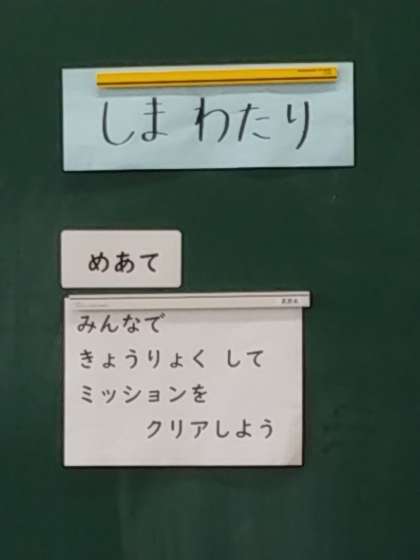 しまわたり
めあて
みんなで
きょうりょく して
ミッションを
クリアしよう